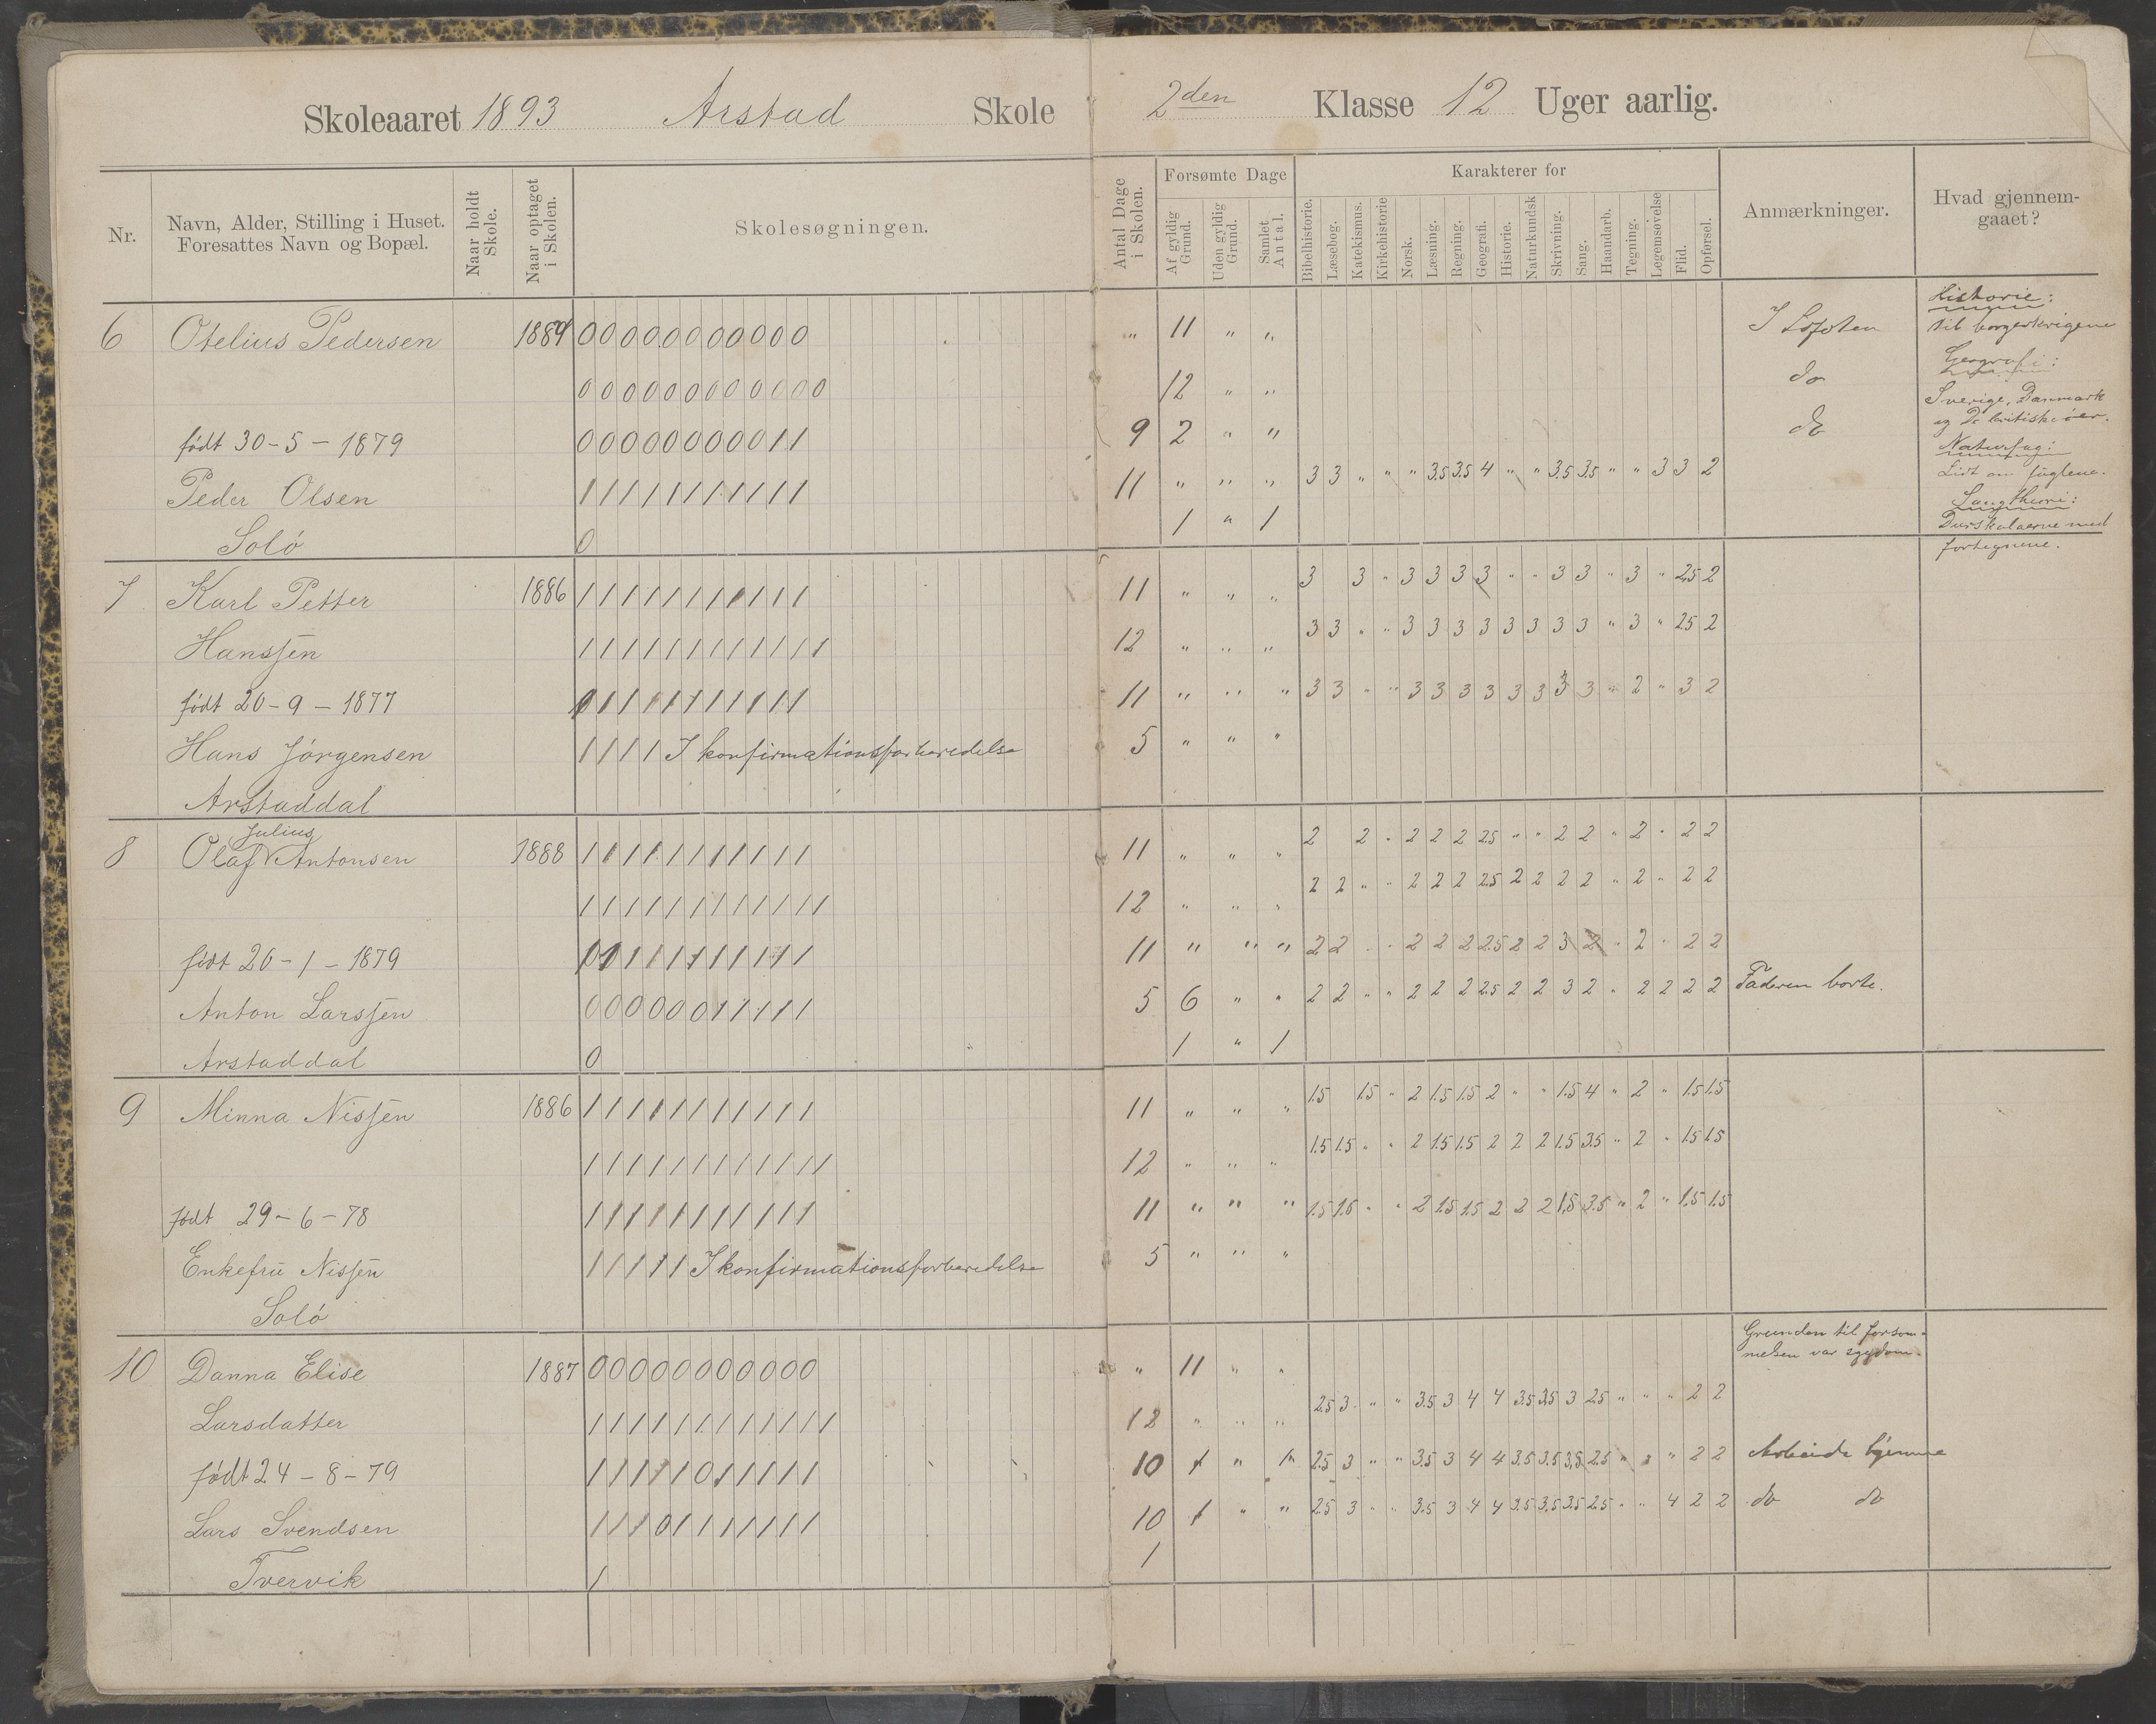 Skoleaaret 1893 Arstad Skole 2den Klasse 12 Uger aarlig.
Nr.
Navn, Alder, Stilling i Huset.
Foresattes Navn og Bopæl.
Naar holdt
Skole.
Naar optaget
i Skolen.
Skolesøgningen.
Antal Dage
i Skolen.
Forsømte Dage
Af gyldig
Grund.
Uden gyldig
Grund.
Samlet
Antal.
Karakterer for
Bibelhistorie.
Læsebog.
Katekismus.
Kirkehistorie
Norsk.
Læsning.
Regning.
Geografi.
Historie.
Naturkundsk
Skrivning.
Sang.
Haandarb.
Tegning.
Legemsøvelse
Flid.
Opførsel.
Anmærkninger.
Hvad gjennem-
gaaet?
6 Otelius Pedersen 1889 0 0 0 0 0 0 0 0 0 0 0 " 11 " " I Lofoten
0 0 0 0 0 0 0 0 0 0 0 0 12 " " do
født 30-5-1879 0 0 0 0 0 0 0 0 0 1 1 9 2 " " do
Peder Olsen 1 1 1 1 1 1 1 1 1 1 1 11 " " " 3 3 " " " 3.5 3.5 4 " " 3.5 3.5 " " 3 3 2
Solø 0 1 " 1
Historie:
til borgerkrigene
Geografi:
Sverige, Danmark
og De britiske øer.
Naturfag:
Lidt om fuglene.
Sangtheori:
Durskalaerne med
fortegnene.
7 Karl Petter 1886 1 1 1 1 1 1 1 1 1 1 1 11 " " " 3 3 " 3 3 3 3 " " 3 3 " 3 " 2.5 2
Hanssen 1 1 1 1 1 1 1 1 1 1 1 1 12 " " " 3 3 " " 3 3 3 3 3 3 3 3 " 3 " 2.5 2
født 20-9-1877 1 1 1 1 1 1 1 1 1 1 1 11 " " " 3 3 " " 3 3 3 3 3 3 3 3 " 2 " 3 2
Hans Jørgensen 1 1 1 1 I konfirmationsforberedelse 5 " " "
Arstaddal
8 Olaf Julius Antonsen 1888 1 1 1 1 1 1 1 1 1 1 1 11 " " " 2 2 " 2 2 2 2.5 " " 2 2 " 2 " 2 2
1 1 1 1 1 1 1 1 1 1 1 1 12 " " " 2 2 " " 2 2 2 2.5 2 2 2 2 " 2 " 2 2
født 26-1-1879 1 1 1 1 1 1 1 1 1 1 1 11 " " " 2 2 " " 2 2 2 2.5 2 2 3 2 " 2 " 2 2
Anton Larssen 0 0 0 0 0 0 1 1 1 1 1 5 6 " " 2 2 " " 2 2 2 2.5 2 2 3 2 " 2 2 2 2 Faderen borte.
Arstaddal 0 1 " 1
9 Minna Nissen 1886 1 1 1 1 1 1 1 1 1 1 1 11 " " " 1.5 1.5 " 2 1.5 1.5 2 " " 1.5 4 " 2 " 1.5 1.5
1 1 1 1 1 1 1 1 1 1 1 1 12 " " " 1.5 1.5 " " 2 1.5 1.5 2 2 2 1.5 3.5 " 2 " 1.5 1.5
født 29-6-78 1 1 1 1 1 1 1 1 1 1 1 11 " " " 1.5 1.5 " " 2 1.5 1.5 2 2 2 1.5 3.5 " 2 " 1.5 1.5
Enkefru Nissen 1 1 1 1 1 I konfirmationsforberedelse 5 " " "
Solø
10 Danna Elise 1887 0 0 0 0 0 0 0 0 0 0 0 " 11 " " Grunden til forsøm-
melsen var sygdom.
Larsdatter 1 1 1 1 1 1 1 1 1 1 1 1 12 " " " 2.5 3 " " 3.5 3 4 4 3.5 3.5 3 2.5 " " " 2 2
født 24-8-79 1 1 1 1 1 0 1 1 1 1 1 10 1 " 2.5 3 " " 3.5 3 4 4 3.5 3.5 3.5 2.5 " " " 2 2 Arbeide hjemme
Lars Svendsen 1 1 1 0 1 1 1 1 1 1 1 10 1 " " 2.5 3 " " 3.5 3 4 4 3.5 3.5 3.5 2.5 " " 4 2 2 do do
Tvervik 1 1